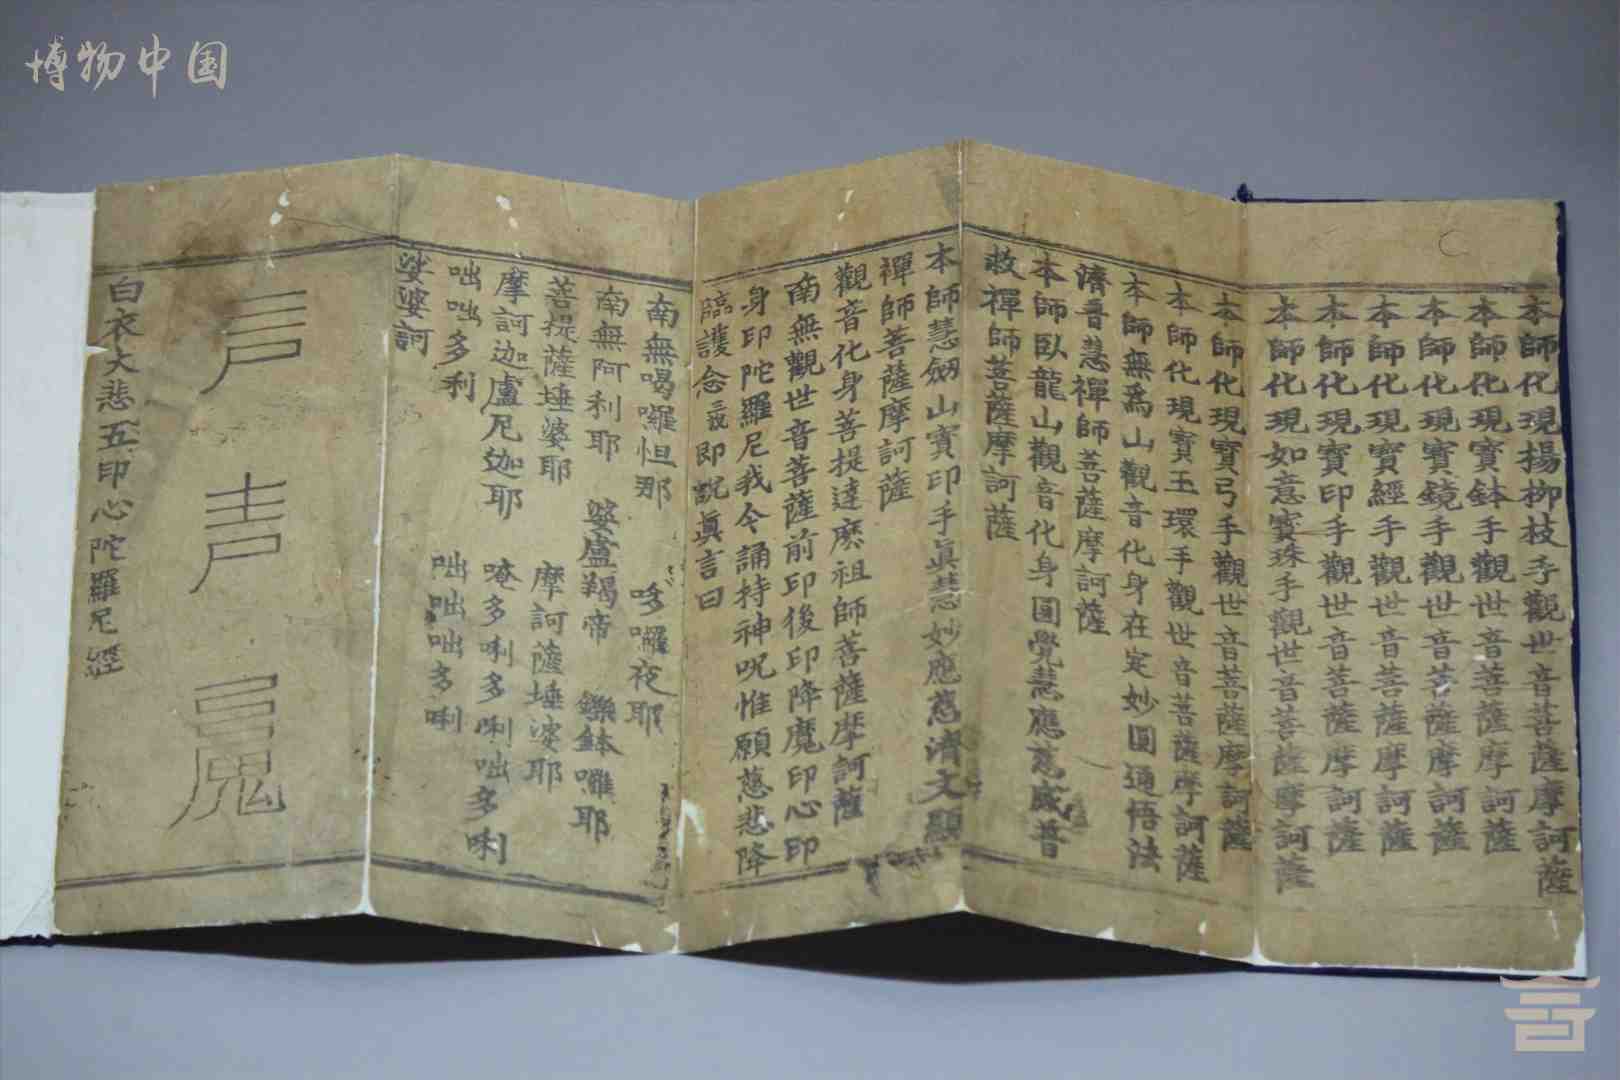 博物中国
本師化現揚柳枝手觀世音菩薩摩訶薩
本師化現寶鉢手觀世音菩薩摩訶薩
本師化現寶鏡手觀世音菩薩摩訶薩
本師化現寶經手觀世音菩薩摩訶薩
本師化現寶印手觀世音菩薩摩訶薩
本師化現如意寶珠手觀世音菩薩摩訶薩
本師化現寶弓手觀世音菩薩摩訶薩
本師化現寶玉環手觀世音菩薩摩訶薩
本師無爲山觀音化身在定妙圓通悟法
濟普慧禪師菩薩摩訶薩
本師臥龍山觀音化身圓覺慧應慈感普
救禪師菩薩摩訶薩
本師慧劒山寶印手真慧妙應慈濟文顯
禪師菩薩摩訶薩
觀音化身菩提達麽祖師菩薩摩訶薩
南無觀世音菩薩前印後印降魔印心印
身印陀羅尼我今誦持神呪惟願慈悲降
臨護念三説即說真言曰
南無喝囉怛那 哆囉夜耶
南無阿利耶 婆盧羯帝 鑠鉢囉耶
菩提薩埵婆耶 摩訶薩埵婆耶
摩訶迦盧尼迦耶 唵多唎多唎咄多唎
咄咄多利 咄咄咄多唎
娑婆訶
白衣大悲五印心陀羅尼經